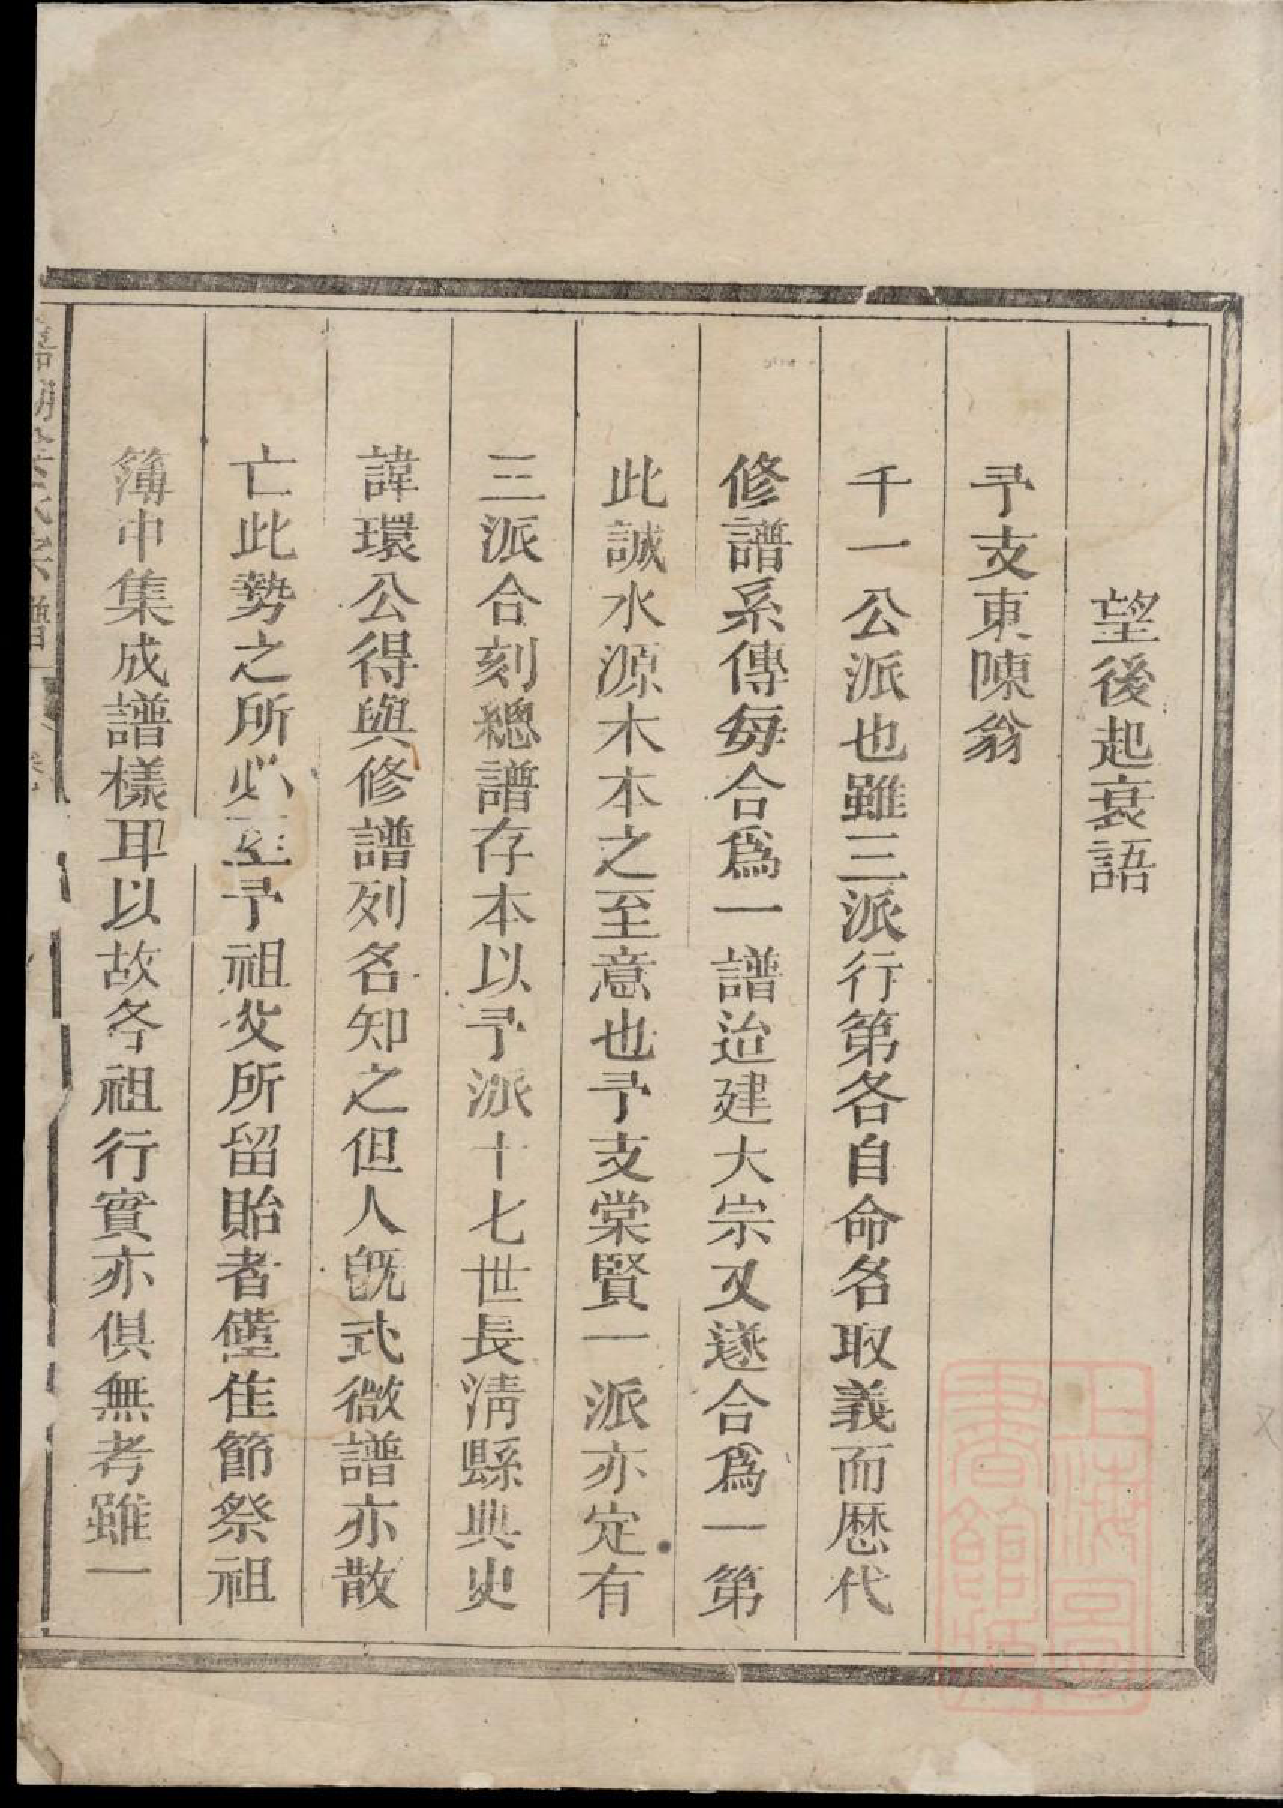 望後起衰語
予支東陳翁
千一公派也雖三派行第各自命名取義而歷代
修譜系傳每合爲一譜迨建大宗又遂合爲一第
此誠水源木本之至意也予支棠賢一派亦定有
三派合刻總譜存本以予派十七世長淸縣典史
諱環公得與修譜列名知之但人旣式微譜亦散
亡此勢之所必至予祖父所留貽者僅隹節祭祖
簿中集成譜樣耳以故各祖行實亦俱無考雖一
上海圖書館藏